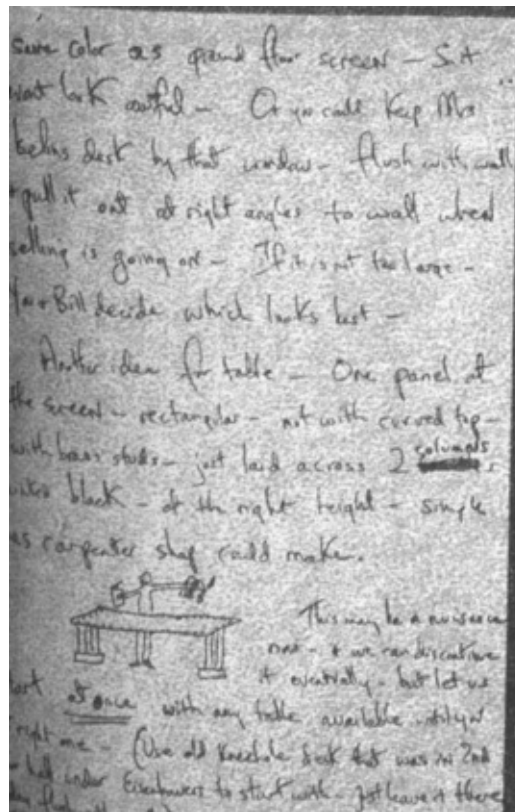 same color as ground floor screen - So it
wont look awful - Or you could keep Mrs
desk by that window - flush with wall
+ pull it out at right angles to wall when
selling is going on - If it is not too large -
You + Bill decide which looks best -
Another idea for table - One panel of
the screen - rectangular - not with curved top -
with brass studs - just laid across 2 columns
black - at the right height - simple
as carpenter shop could make.
This may be a nuisance
now - + we can discontinue
it eventually - but let us
start at once with any table available until you
right one - (Use old kneehole desk that was in 2nd
hall under Eisenhowers to start with - Just leave it there